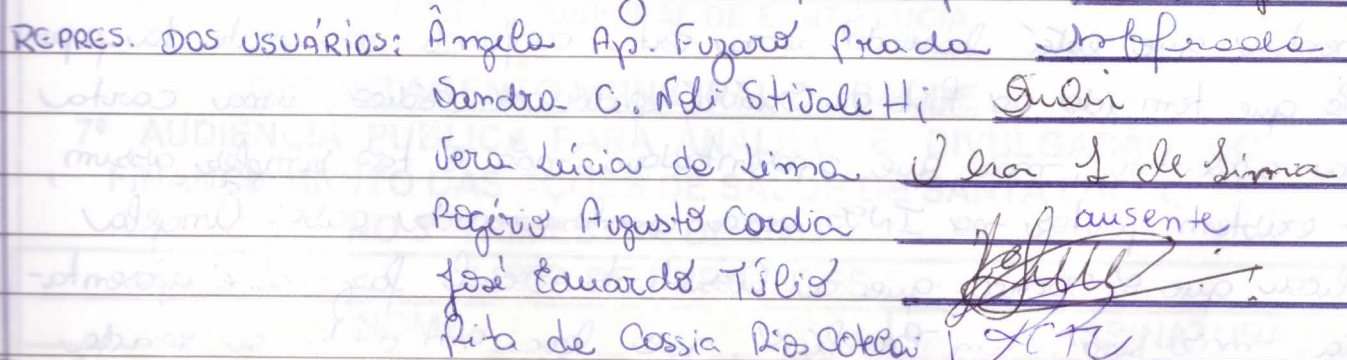 REPRES. DOS USUÁRIOS: Ângela Ap. Fuzaro Prada
Sandra C. Noli Stivaletti
Vera Lúcia de Lima Vera L de Lima
Rogério Augusto Cordia ausente
José Eduardo Túlio
Rita de Cassia